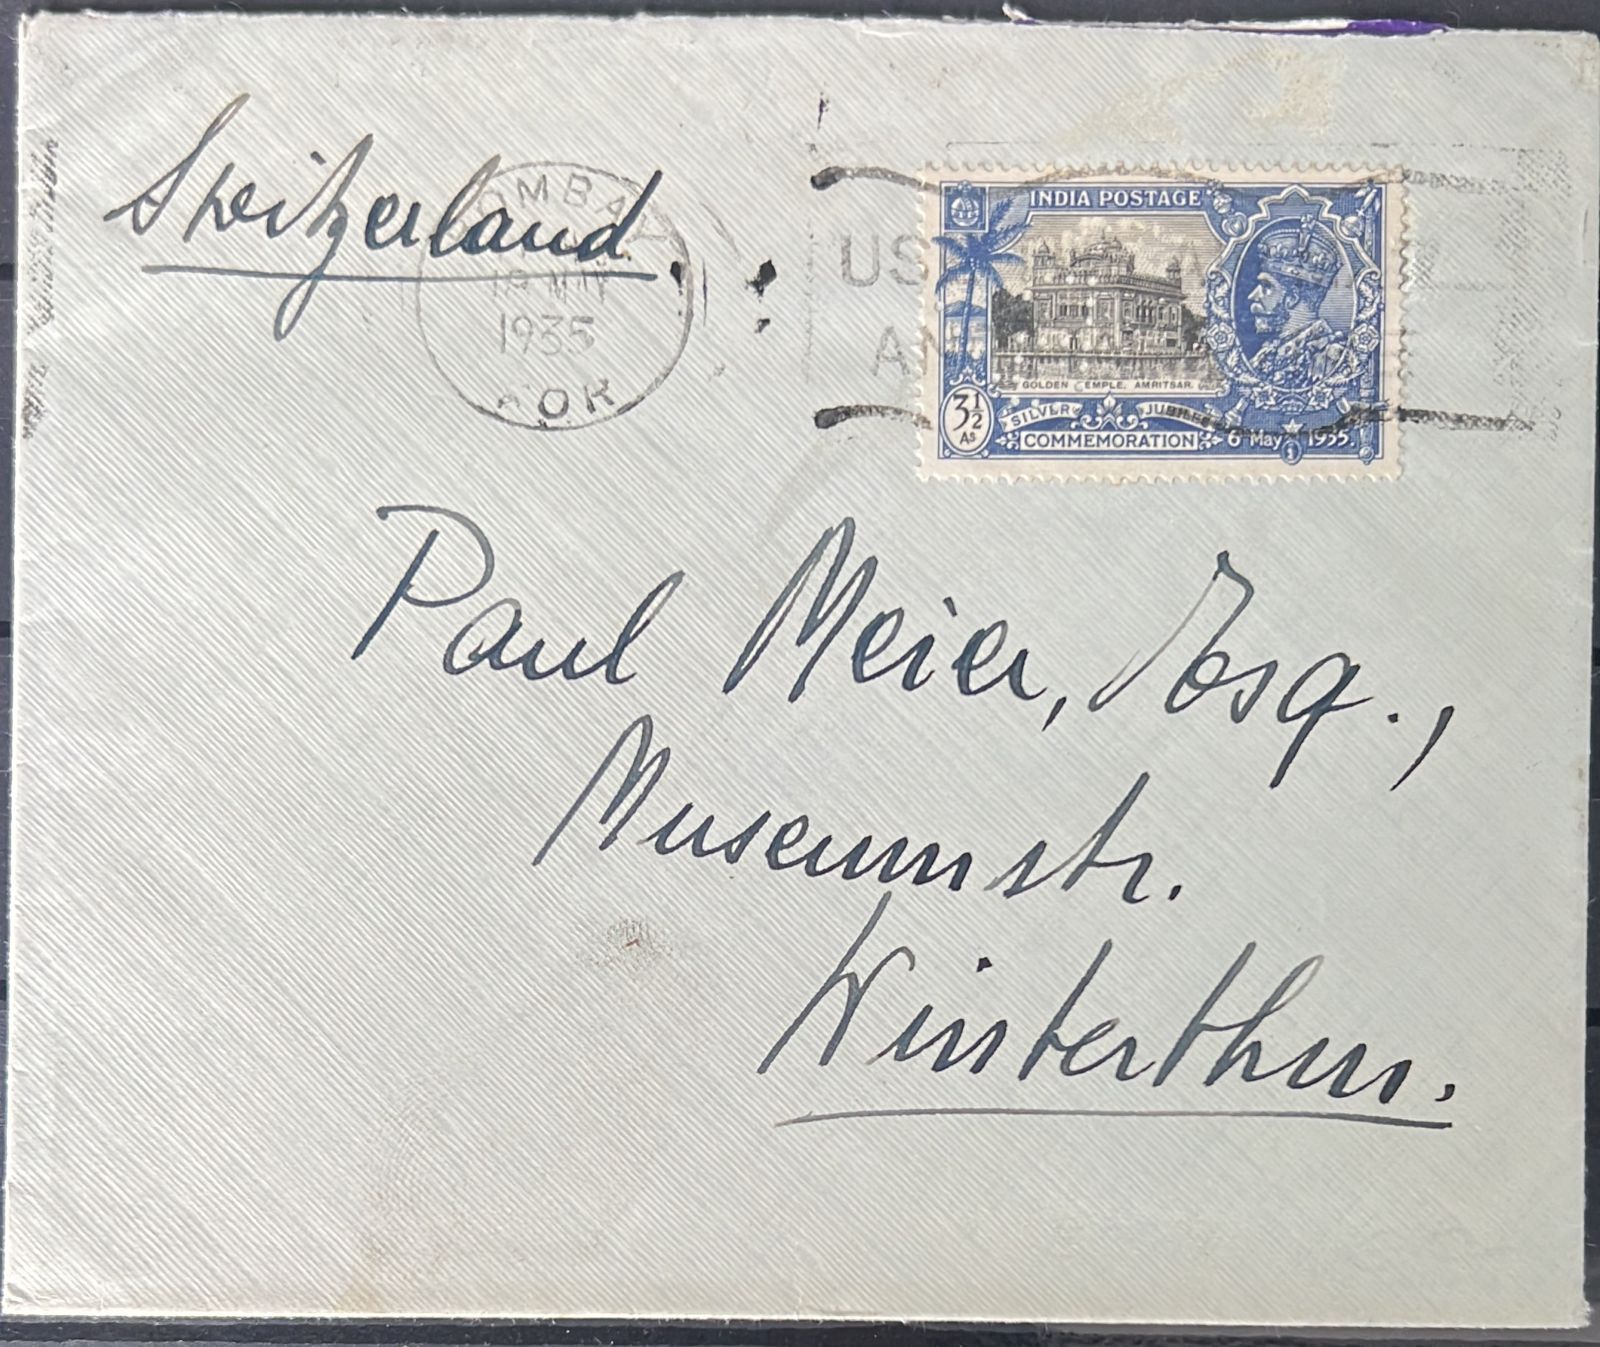 Switzerland.
1935
FOR
US
AN
INDIA POSTAGE
GOLDEN TEMPLE, AMRITSAR.
3½ As
SILVER JUBILEE
COMMEMORATION 6 May 1935.
Paul Meier, Esq.,
Museumstr.
Winterthur.